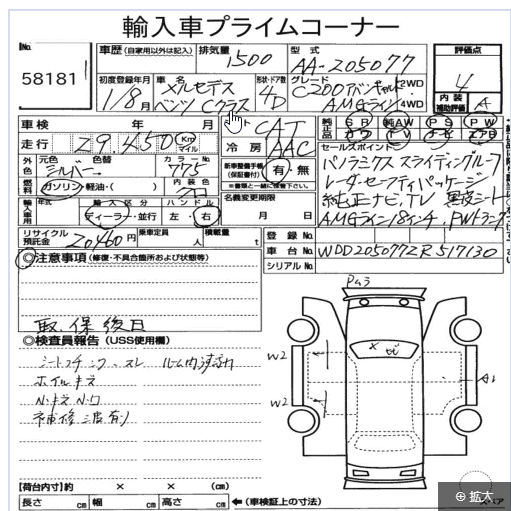 輸入車プライムコーナー
No. 58181
車歴 (自家用以外は記入)
排気量 1500
型式 AA-205077
評価点 4
内装補助評価 A
初度登録年月 1/8月
車名 メルセデスベンツ Cクラス
形状・ドア数 4D
グレード C200アバンギャルド AMGライン 2WD 4WD
車検 年 月
シフト CAT
走行 29,450 Km マイル
冷房 AAC
純正品 SR 純AW PS PW
カワ TV ナビ エアB
外色 元色 シルバー 色替 カラーNo. 775
燃料 ガソリン・軽油・( ) 内装色 クロ
新車整備手帳(保証書付) 有・無
※書類と一緒に保管下さい。
セールスポイント
パノラミクス スライディングルーフ
レーダーセーフティパッケージ
純正ナビ、TV 黒皮シート
AMGライン18インチ、PWトランク
輸入車用 年式 輸入区分 ディーラー・並行 ハンドル 左・右
名義変更期限 月 日
リサイクル預託金 20460円 乗車定員 人 積載量 t
登録No.
車台No. WDD2050772R517130
シリアルNo.
◎注意事項 (修復・不具合箇所および状態等)
取、保後日
◎検査員報告 (USS使用欄)
シートコチ シワ スレ ルーム内すり有
ホイルキズ
N・キズ N・ワ
補修ミ波有り
Pムラ
W2
W2
X ヒビ
A1
【荷台内寸】約 × × (cm)
長さ cm 幅 cm 高さ cm ←(車検証上の寸法)
スペア
拡大